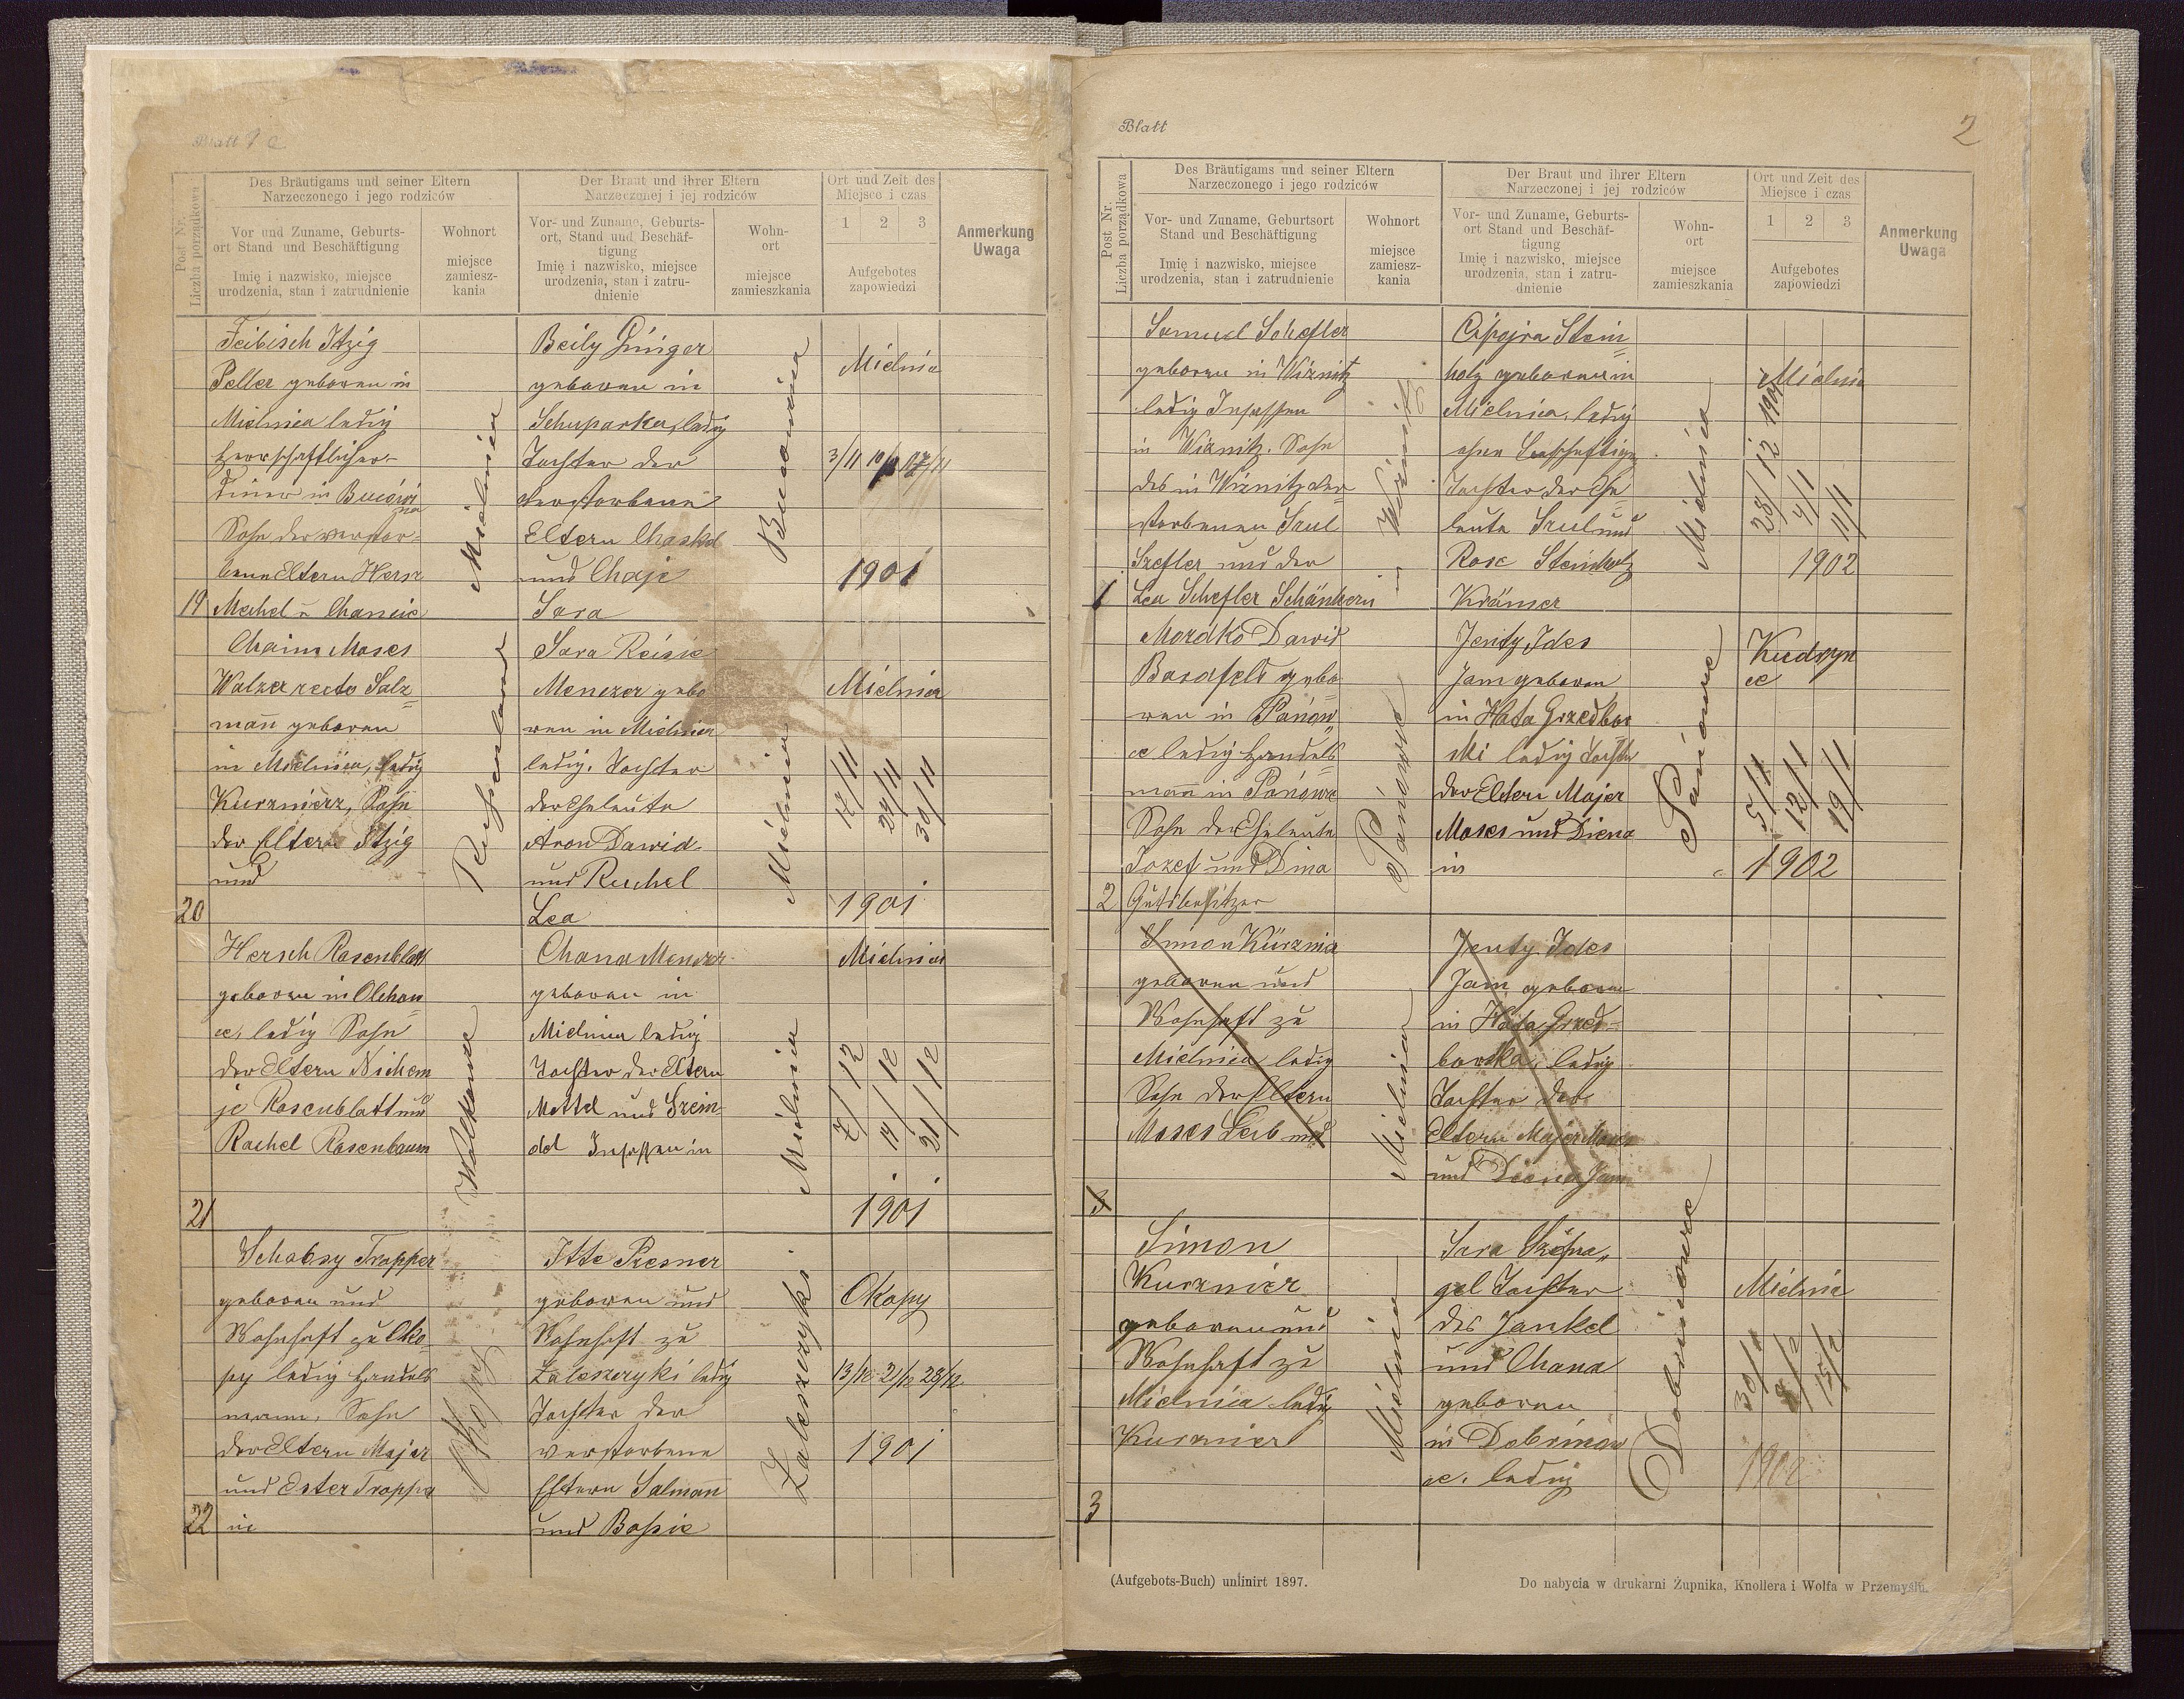 Blatt
Post Nr.
Liczba porządkowa
Des Bräutigams und seiner Eltern
Narzeczonego i jego rodziców
Der Braut und ihrer Eltern
Narzeczonej i jej rodziców
Ort und Zeit des
Miejsce i czas
Vor und Zuname, Geburts-
ort Stand und Beschäftigung
Imię i nazwisko, miejsce
urodzenia, stan i zatrudnienie
Wohnort
miejsce
zamiesz-
kania
Vor- und Zuname, Geburts-
ort, Stand und Beschäf-
tigung
Imię i nazwisko, miejsce
urodzenia, stan i zatru-
dnienie
Wohn-
ort
miejsce
zamieszkania
1 2 3
Aufgebotes
zapowiedzi
Anmerkung
Uwaga
19
Feibisch Itzig
Peller geboren in
Mielnica ledig
herrschaftlicher
Diener in
Sohn der verstor-
benen Eltern Hersz
Mechel u Chancie
Mielnica
Beily Ginger
geboren in
Schuparka, ledig
Tochter der
verstorbenen
Eltern Chaskel
und Chaje
Sara
Mielnica
3/11 10/11 17/11
1901
20
Chaim Moses
Walzer recte Salz=
mann geboren
in Mielnica, ledig
Kurznierz, Sohn
der Eltern Itzig
und
Sara Reisie
Menczer gebo=
ren in Mielnica
ledig. Tochter
der Eheleute
Aron Dawid
und Ruchel
Lea
Mielnica
Mielnica
17/11
24/11
30/11
1901
21
Hersch Rosenblatt
geboren in Olchow=
ce, ledig Sohn
der Eltern Nichem
je Rosenblatt und
Rachel Rosenbaum
Chana Menczer
geboren in
Mielnica ledig
Tochter der Eltern
Mottel und Szein-
del Insassen in
Mielnica
Mielnica
7/12
14/12
21/12
1901
22
Schabsy Trapper
geboren und
Wohnhaft zu Oko=
py ledig Handels
mann, Sohn
der Eltern Majer
und Ester Trapper
in
Okopy
Itte Presner
geboren und
Wohnhaft zu
Zaleszczyki ledig
Tochter der
verstorbenen
Eltern Salmann
und Bassie
Zaleszczyki
Okopy
13/12 21/12 28/12
1901
Blatt
2
Post Nr.
Liczba porządkowa
Des Bräutigams und seiner Eltern
Narzeczonego i jego rodziców
Der Braut und ihrer Eltern
Narzeczonej i jej rodziców
Ort und Zeit des
Miejsce i czas
Vor- und Zuname, Geburtsort
Stand und Beschäftigung
Imię i nazwisko, miejsce
urodzenia, stan i zatrudnienie
Wohnort
miejsce
zamiesz-
kania
Vor- und Zuname, Geburts-
ort Stand und Beschäf-
tigung
Imię i nazwisko, miejsce
urodzenia, stan i zatru-
dnienie
Wohn-
ort
miejsce
zamieszkania
1 2 3
Aufgebotes
zapowiedzi
Anmerkung
Uwaga
1
Samuel Schefler
geboren in Wiznitz
ledig Insassen
in Wiznitz. Sohn
des in Wiznitz ver=
storbenen Srul
Szefler und der
Lea Schefler Schänkerin
Wiznitz
Cipojra Stein=
holz geboren in
Mielnica, ledig
ohne
Tochter der Ehe=
leute Srul und
Rose Steinholz
Krämer
Mielnica
Mielnica
28/12 1901
4/1
11/1
1902
2
Mordko Dawid
gebo=
ren in Paniow=
ce ledig Handels=
mann in Paniowce
Sohn der Eheleute
Jozef und Dina
Gutsbesitzer
Paniowce
Jenty Ides
Jam geboren
in
ledig Tochter
der Eltern Majer
Moses und Diena
in
Paniowce
Kudryn=
ce
5/1
12/1
19/1
1902
3
Simon
geboren und
Wohnhaft zu
Mielnica ledig
Sohn der Eltern
Moses Leib und
Mielnica
Jenty Ides
Jam geboren
in
ledig
Tochter der
Eltern Majer Moses
und Diena Jam
3
Simon
Kurznier
geboren und
Wohnhaft zu
Mielnica ledig
Kurznier
Mielnica
Sara
gel Tochter
des Jankel
und Chana
geboren
in Dobrinow
ce. ledig
Dobrinowce
Mielnica
30/1
8/2
15/2
1902
(Aufgebots-Buch) unlinirt 1897.
Do nabycia w drukarni Żupnika, Knollera i Wolfa w Przemyślu.